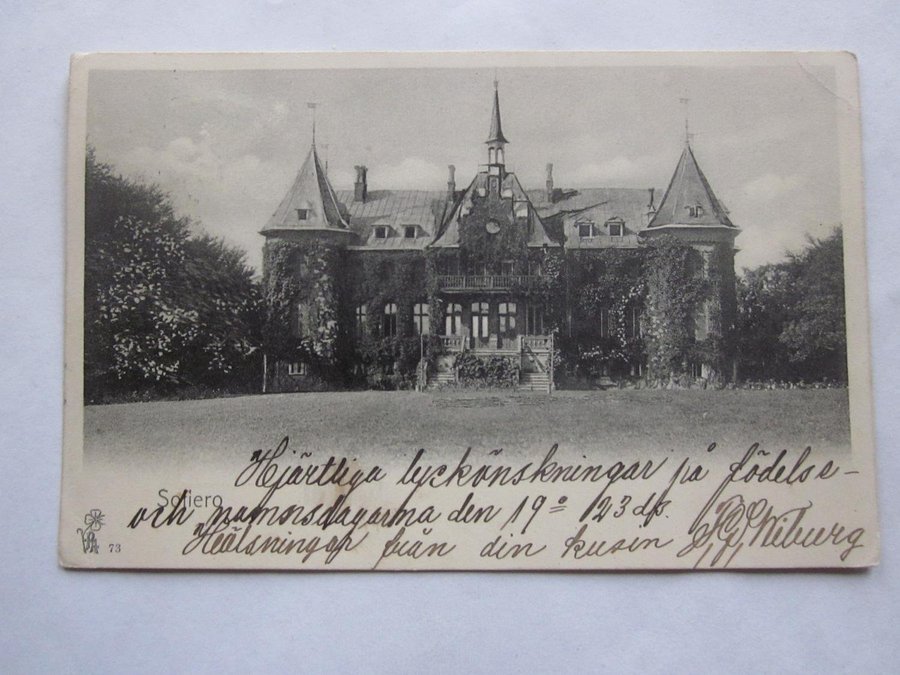 Hjärtliga lyckönskningar på födelse-
Sofiero
och namnsdagarna den 19 o 23 ds.
73
Hälsningar från din kusin